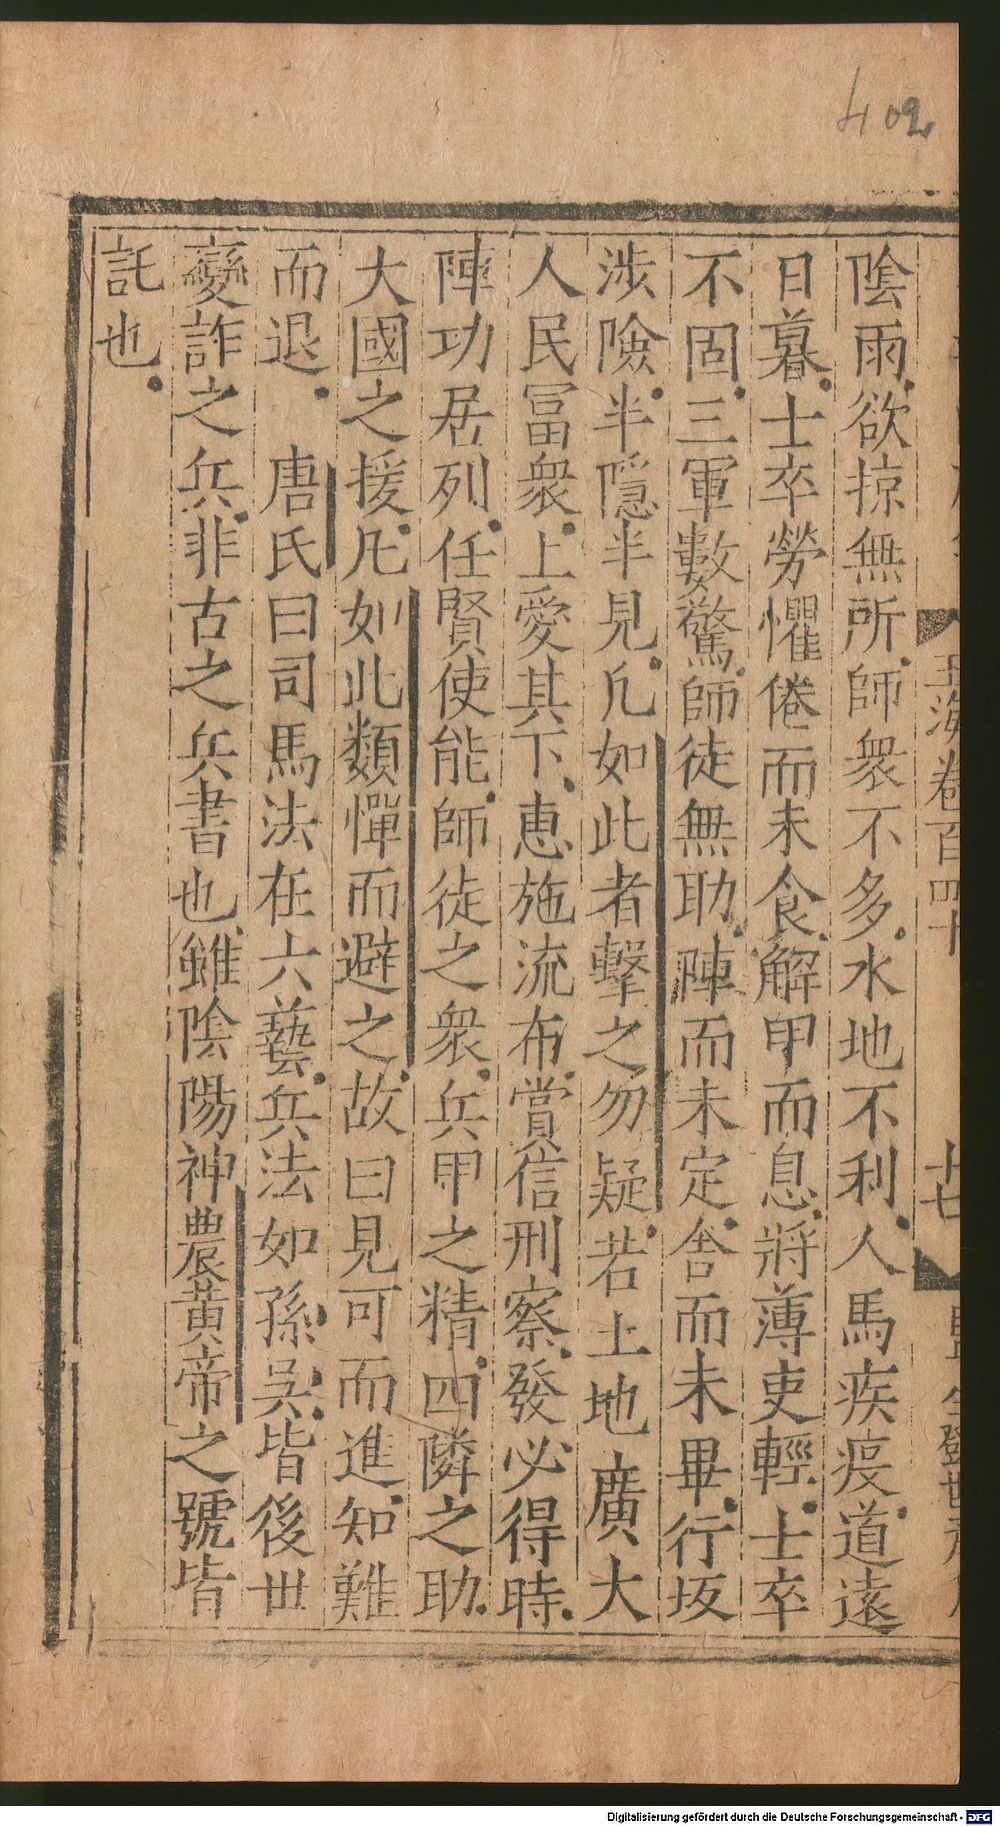 402
玉海卷百四十
十七
陰雨欲掠無所師衆不多水地不利人馬疾疫道遠
日暮士卒勞懼倦而未食解甲而息將薄吏輕士卒
不固三軍數驚師徒無助陣而未定舍而未畢行坂
涉險半隱半見凡如此者擊之勿疑若土地廣大
人民冨衆上愛其下惠施流布賞信刑察發必得時
陣功居列任賢使能師徒之衆兵甲之精四隣之助
大國之援凡如此類憚而避之故曰見可而進知難
而退 唐氏曰司馬法在六藝兵法如孫吳皆後世
變詐之兵非古之兵書也雖陰陽神農黃帝之號皆
託也
Digitalisierung gefördert durch die Deutsche Forschungsgemeinschaft - DFG